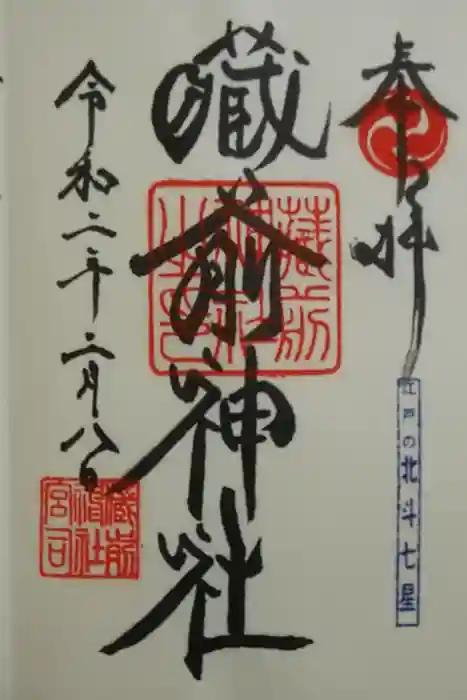 奉拝
江戸の北斗七星
蔵前神社
蔵前神社之印
令和二年二月八日
蔵前神社宮司